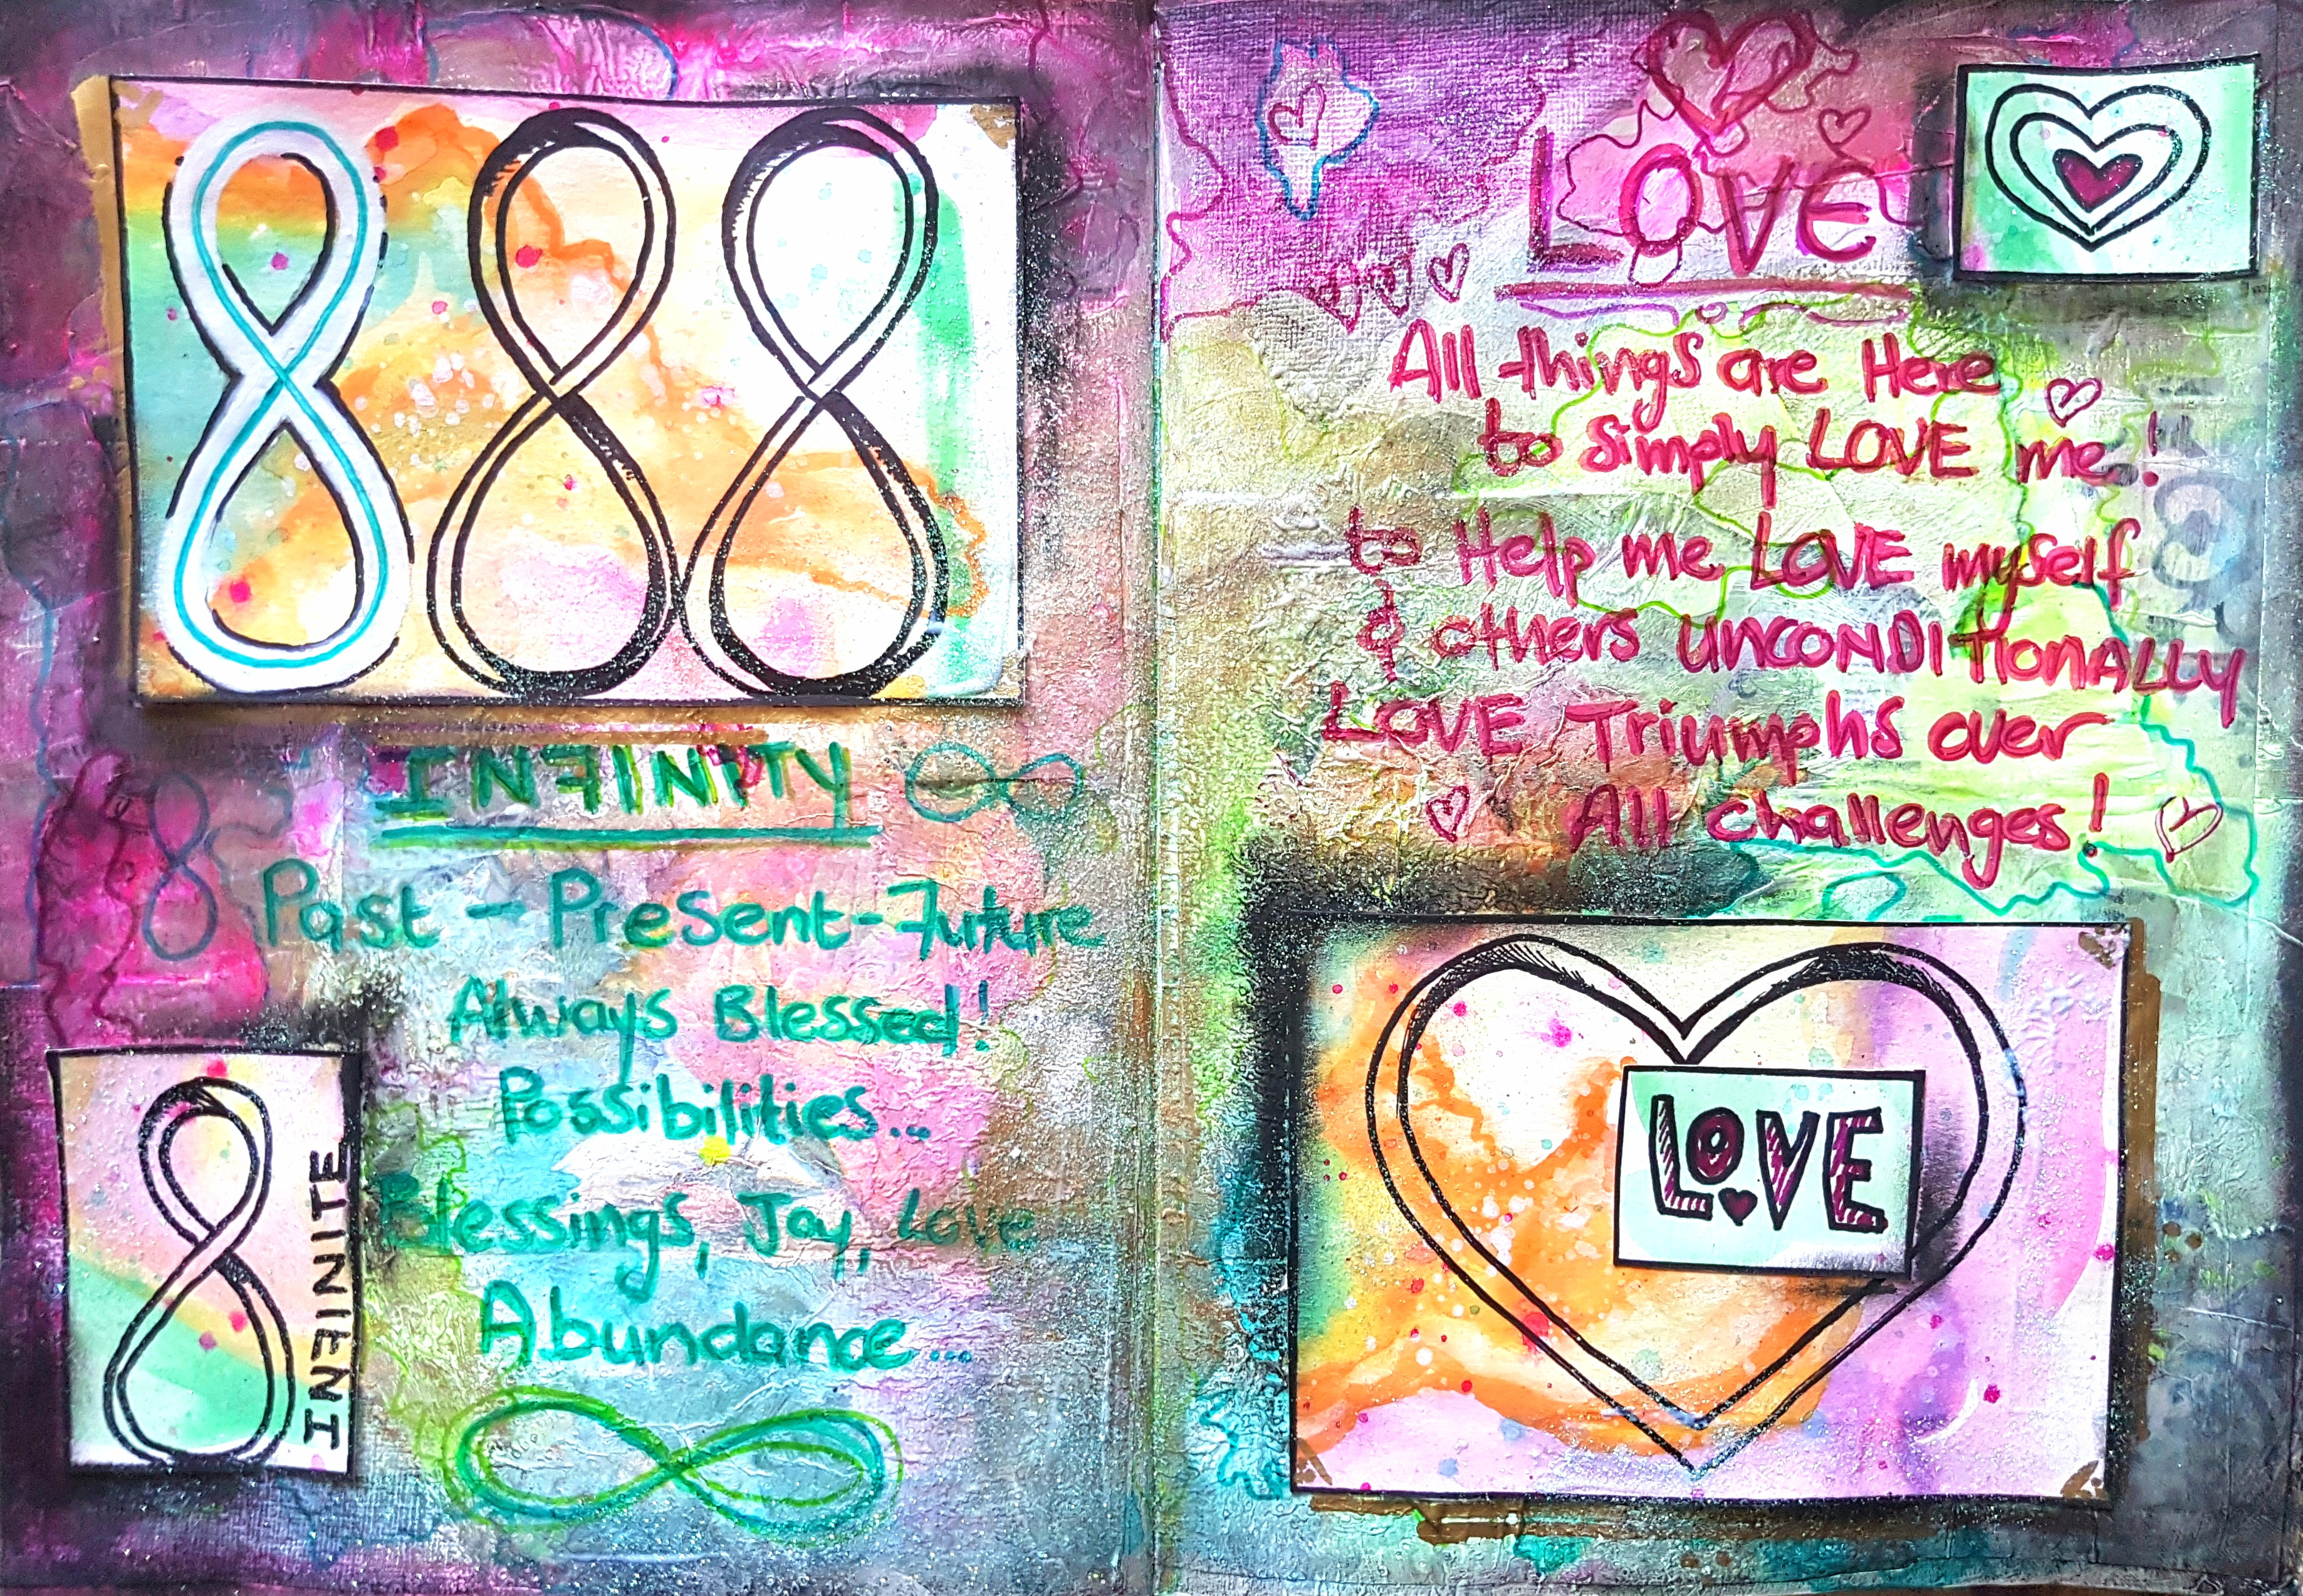 888
INFINITY
Past - Present - Future
Always Blessed!
Possibilities...
Blessings, Joy, Love
Abundance...
INFINITE
LOVE
All things are Here
to simply LOVE me!
to Help me LOVE myself
& others UNCONDITIONALLY
LOVE Triumphs over
All challenges!
LOVE